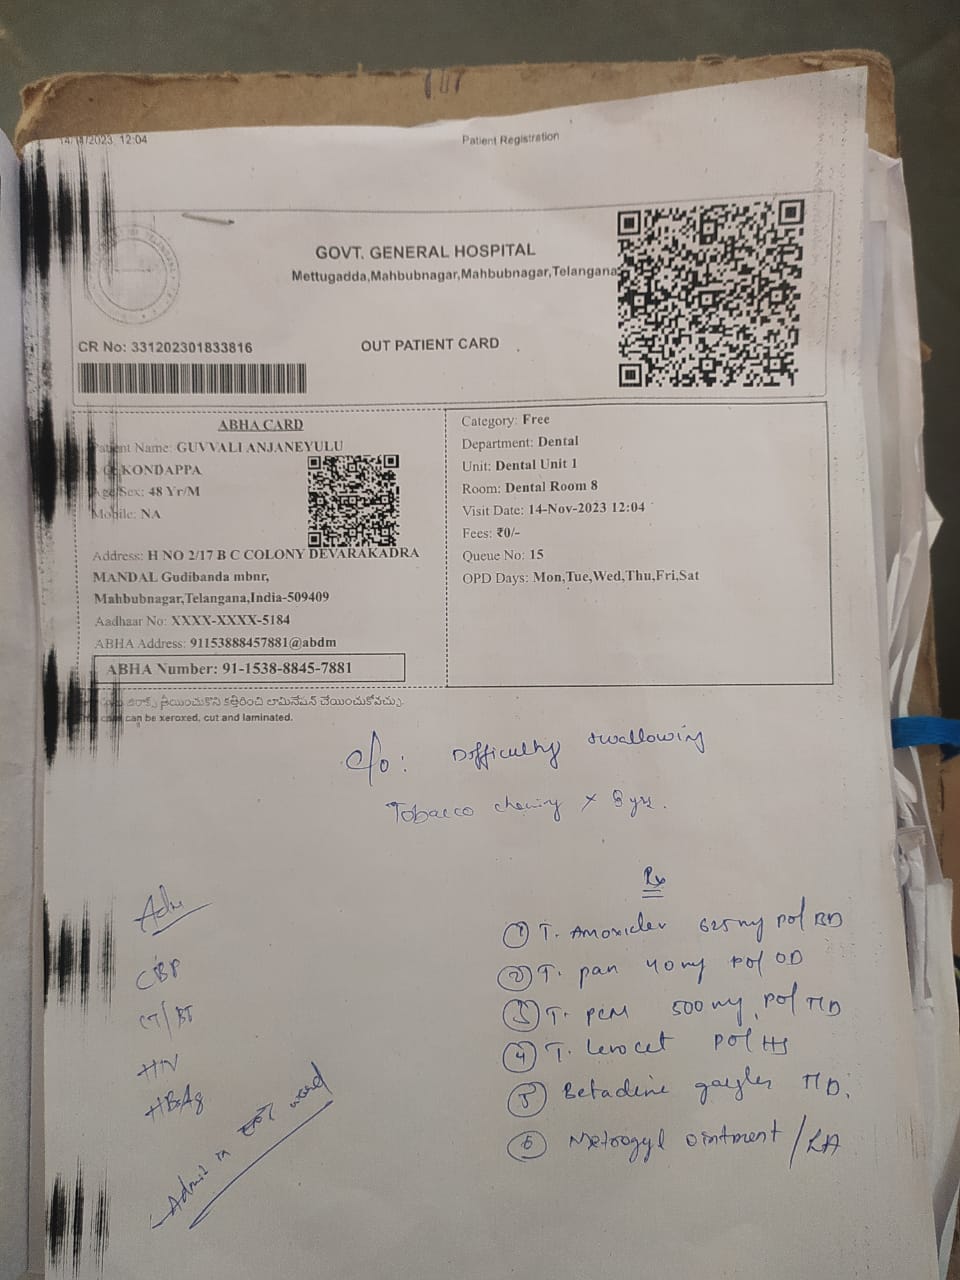 14/11/2023, 12:04
Patient Registration
GOVT. GENERAL HOSPITAL
Mettugadda,Mahbubnagar,Mahbubnagar,Telangana
CR No: 331202301833816
OUT PATIENT CARD
ABHA CARD
Patient Name: GUVVALI ANJANEYULU
KONDAPPA
Age/Sex: 48 Yr/M
Mobile: NA
Address: H NO 2/17 B C COLONY DEVARAKADRA
MANDAL Gudibanda mbnr,
Mahbubnagar,Telangana,India-509409
Aadhaar No: XXXX-XXXX-5184
ABHA Address: 91153888457881@abdm
ABHA Number: 91-1538-8845-7881
Category: Free
Department: Dental
Unit: Dental Unit 1
Room: Dental Room 8
Visit Date: 14-Nov-2023 12:04
Fees: ₹0/-
Queue No: 15
OPD Days: Mon,Tue,Wed,Thu,Fri,Sat
తీయించుకొని కత్తిరించి లామినేషన్ చేయించుకోవచ్చు.
can be xeroxed, cut and laminated.
c/o: Difficulty swallowing
Tobacco chewing x 8 yrs.
Adv
CBP
CT/BT
HIV
HBsAg
Admit in ward
Rx
① T. Amoxiclav 625mg po/ BD
② T. pan 40mg po/ OD
③ T. PCM 500mg po/ TID
④ T. Levocet po/ HS
⑤ Betadine gargles TID.
⑥ Metrogyl ointment /LA